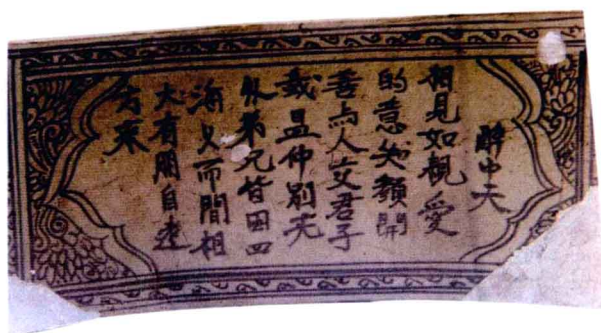 醉中天
相見如親愛
的意顏開
善与人交君子
哉晏仲別无
外弟兄皆因四
海乂而間相
大有朋自遠
方來